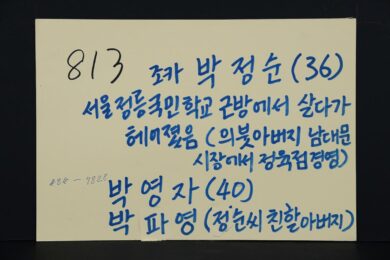 813 조카 박정순(36)
서울정릉국민학교 근방에서 살다가
헤어졌음 (의붓아버지 남대문
시장에서 정육점경영)
박영자(40)
박파영(정순씨 친할아버지)